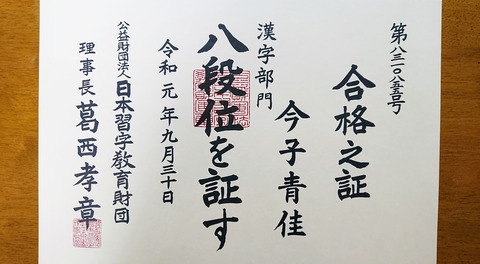 合格之証
今子青佳
漢字部門
八段位を証す
令和元年九月三十日
公益財団法人日本習字教育財団
理事長 葛西孝章